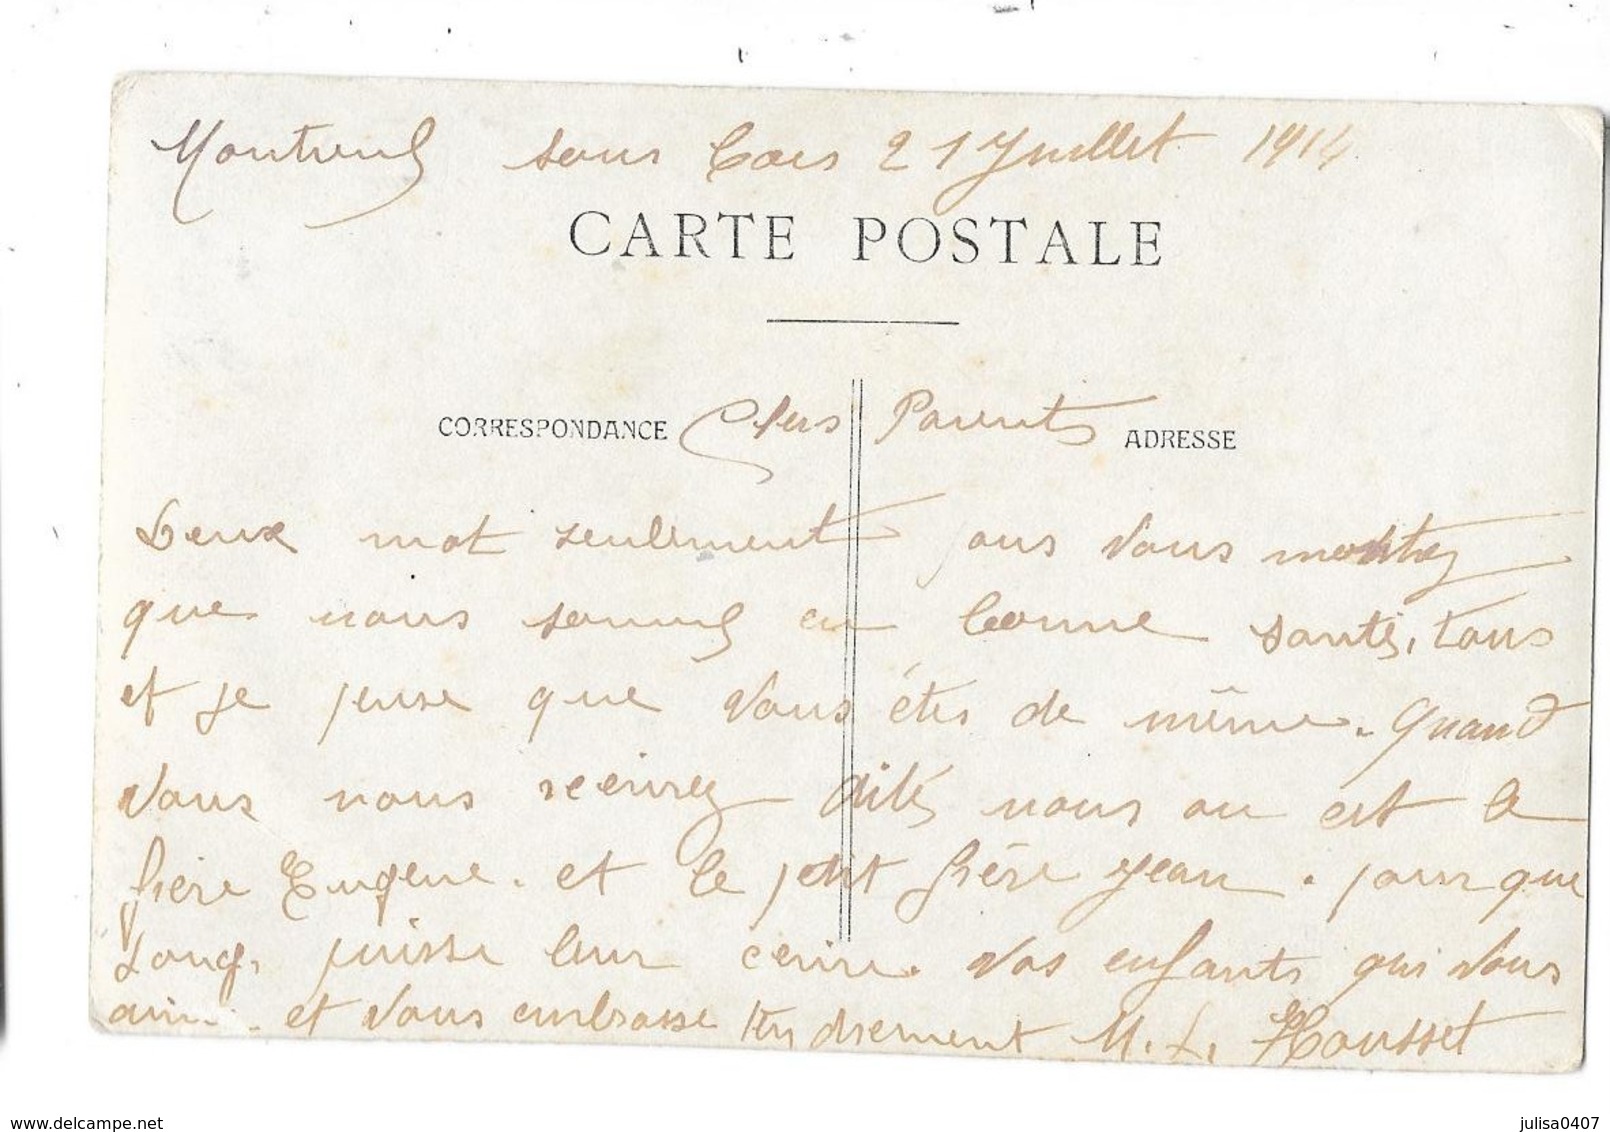 Montreuil sous Bois 21 Juillet 1914
CARTE POSTALE
CORRESPONDANCE Chers Parents ADRESSE
Deux mot seulement pour vous montrez
que nous sommes en bonne santé, tous
et je pense que vous étes de même. Quand
vous nous récrirez dités nous ou est le
frère Eugene. et le petit frère Jean. pour que
puisse leur écrire. Vos enfants qui vous
et vous embrasse tendrement M. L. Housset
www.delcampe.net
julisa0407